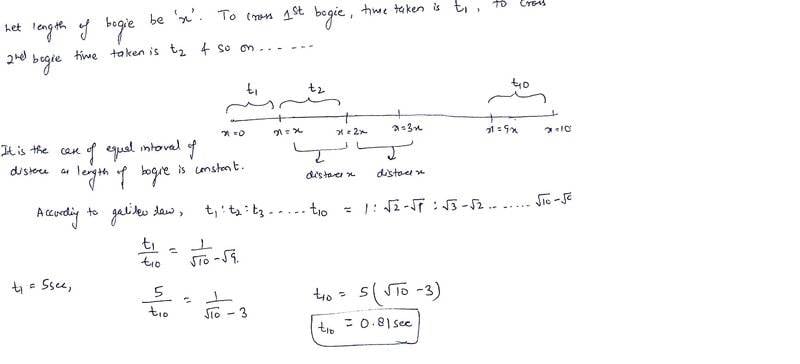 Let length of bogie be 'x'. To cross 1st bogie, time taken is t₁, to cross
2nd bogie time taken is t₂ & so on ------
t₁ t₂ t₁₀
x=0 x=x x=2x x=3x x=9x x=10
It is the case of equal interval of
distance as length of bogie is constant.
distance x distance x
According to galileo law, t₁ : t₂ : t₃ ..... t₁₀ = 1 : √2-√1 : √3-√2 ........ √10-√9
t₁/t₁₀ = 1/√10-√9.
t₁ = 5sec,
5/t₁₀ = 1/√10-3 t₁₀ = 5(√10-3)
t₁₀ = 0.81sec